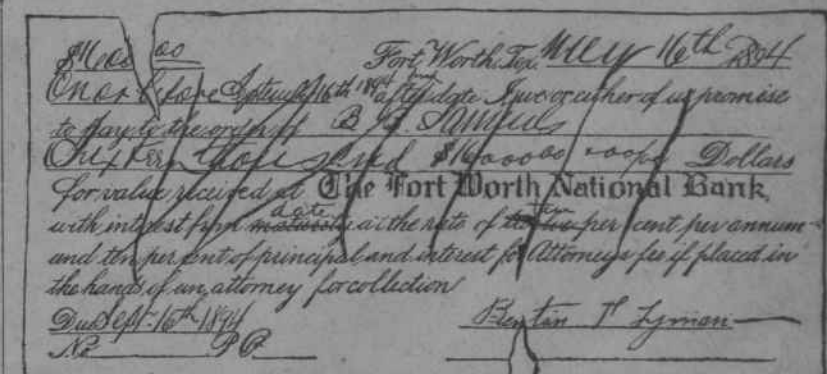 $1600 00 Fort Worth, Tex. May 16th 1894
On or before September 16th 1894 after date I, we or either of us promise
to pay to the order of B B Samuels
thousand $1600000 Dollars
for value received at The Fort Worth National Bank,
with interest from date at the rate of ten per cent per annum
and ten per cent of principal and interest for Attorneys fee if placed in
the hands of an attorney for collection
Due Sept. 16th 1894 Benton P Lyman
No P O